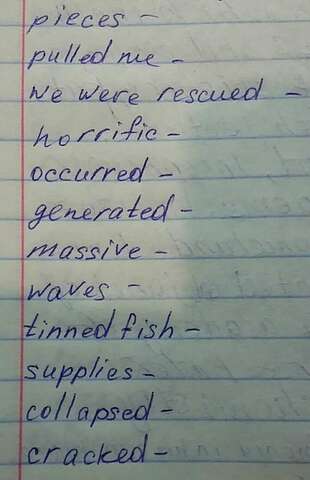 pieces -
pulled me -
we were rescued -
horrific -
occurred -
generated -
massive -
waves -
tinned fish -
supplies -
collapsed -
cracked -